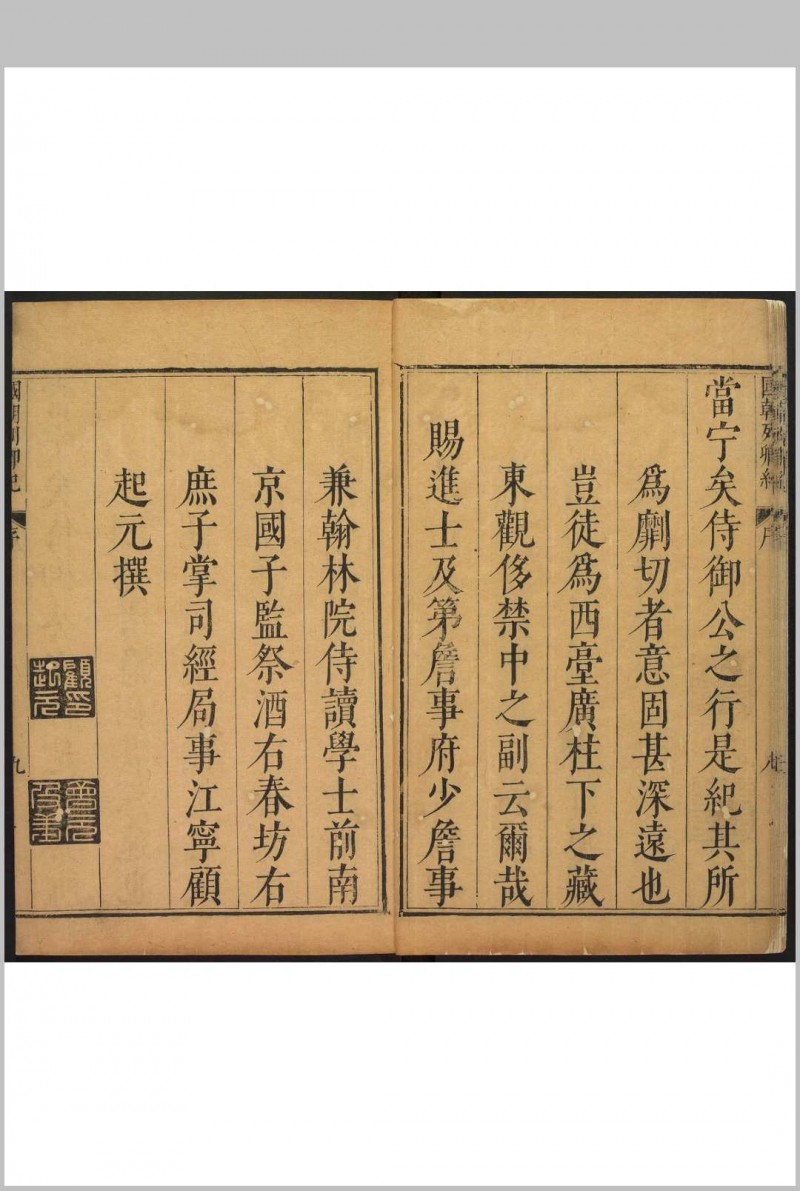 國朝列卿紀
序
當宁矣侍御公之行是紀其所
爲劘切者意固甚深遠也
豈徒爲西臺廣柱下之藏
東觀侈禁中之副云爾哉
賜進士及第詹事府少詹事
兼翰林院侍讀學士前南
京國子監祭酒右春坊右
庶子掌司經局事江寧顧
起元撰
顧起元印
國朝列卿紀
序
九